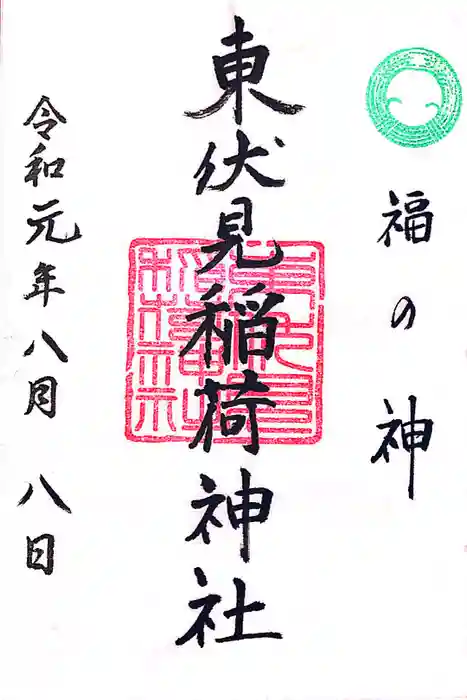 福の神
東伏見稲荷神社
令和元年八月 八日